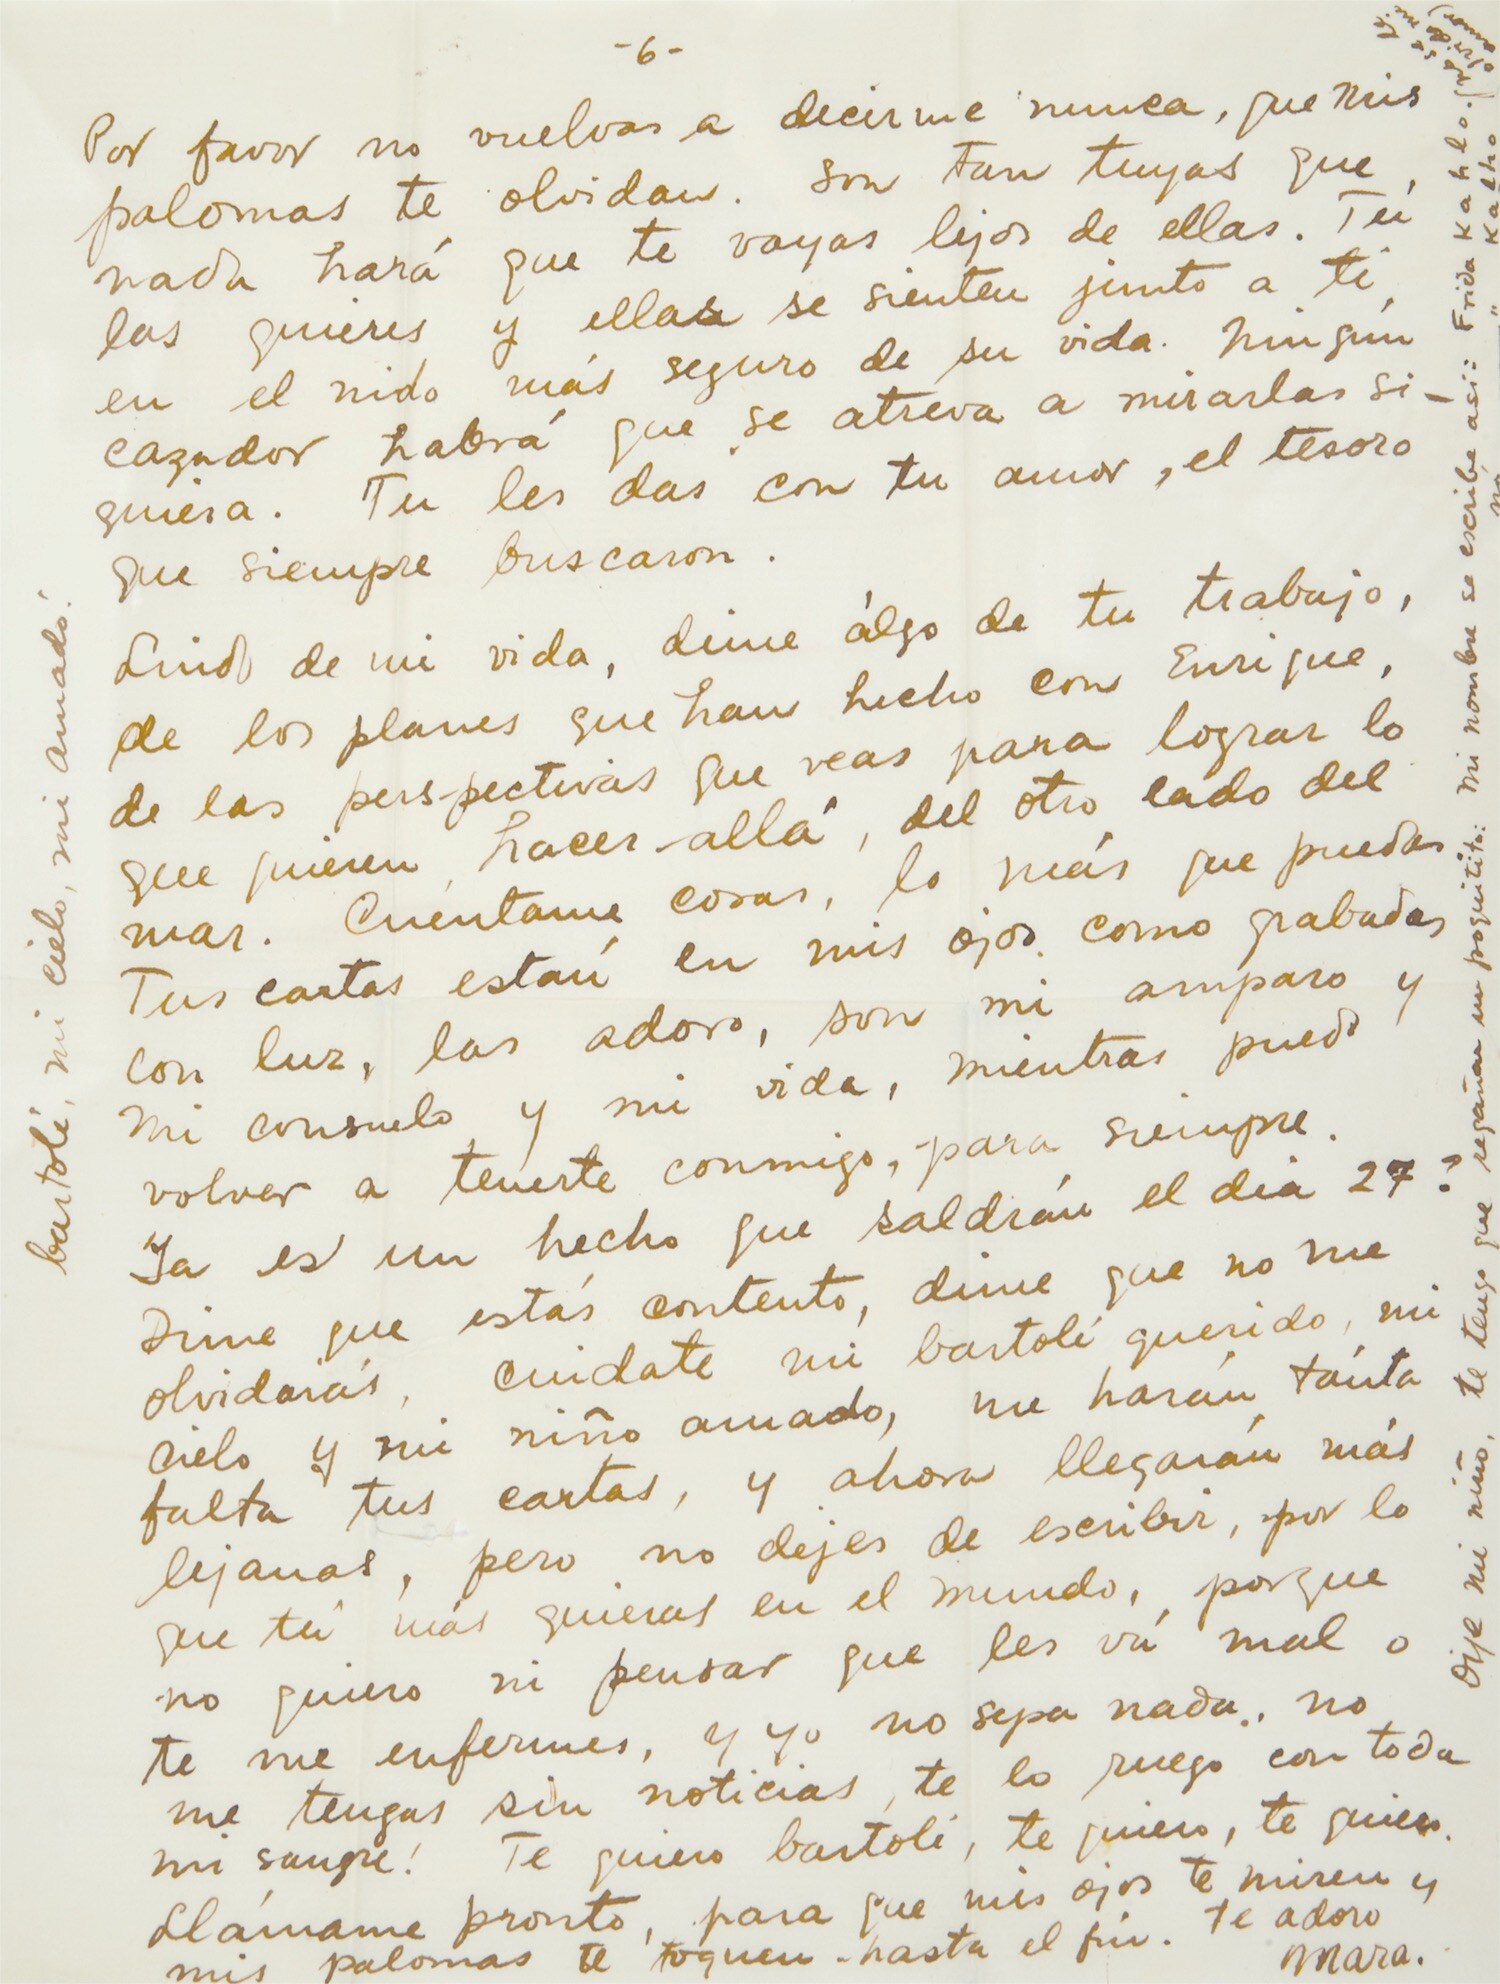 -6-
Por favor no vuelvas a decirme nunca, que mis
palomas te olvidan. Son tan tuyas que,
nada hará que te vayas lejos de ellas. Tú
las quieres y ellas se sienten junto a tí,
en el nido más seguro de su vida. Ningún
cazador habrá que se atreva a mirarlas si-
quiera. Tu les das con tu amor, el tesoro
que siempre buscaron.
Lindo de mi vida, dime álgo de tu trabajo,
de los planes que han hecho con Enrique,
de las perspectivas que veas para lograr lo
que quieren hacer allá, del otro lado del
mar. Cuéntame cosas, lo más que puedas
Tus cartas están en mis ojos como grabadas
con luz, las adoro, son mi amparo y
mi consuelo y mi vida, mientras puedo
volver a tenerte conmigo, para siempre.
Ya es un hecho que saldrán el dia 27?
Dime que estás contento, dime que no me
olvidarás, cuidate mi bartolí querido, mi
cielo y mi niño amado, me harán tánta
falta tus cartas, y ahora llegarán más
lejanas, pero no dejes de escribir, por lo
que tú más quieras en el mundo, porque
no quiero ni pensar que les vá mal o
te me enfermes, y yo no sepa nada, no
me tengas sin noticias, te lo ruego con toda
mi sangre! Te quiero bartolí, te quiero, te quiero.
Llámame pronto, para que mis ojos te miren y
mis palomas te toquen hasta el fin. Te adoro
Mara.
bartolí, mi cielo, mi amado!
Oye mi niño, te tengo que regañar un poquitito: Mi nombre se escribe así: Frida Kahlo. (no se te
olvide mi
amor)
no " Kalho